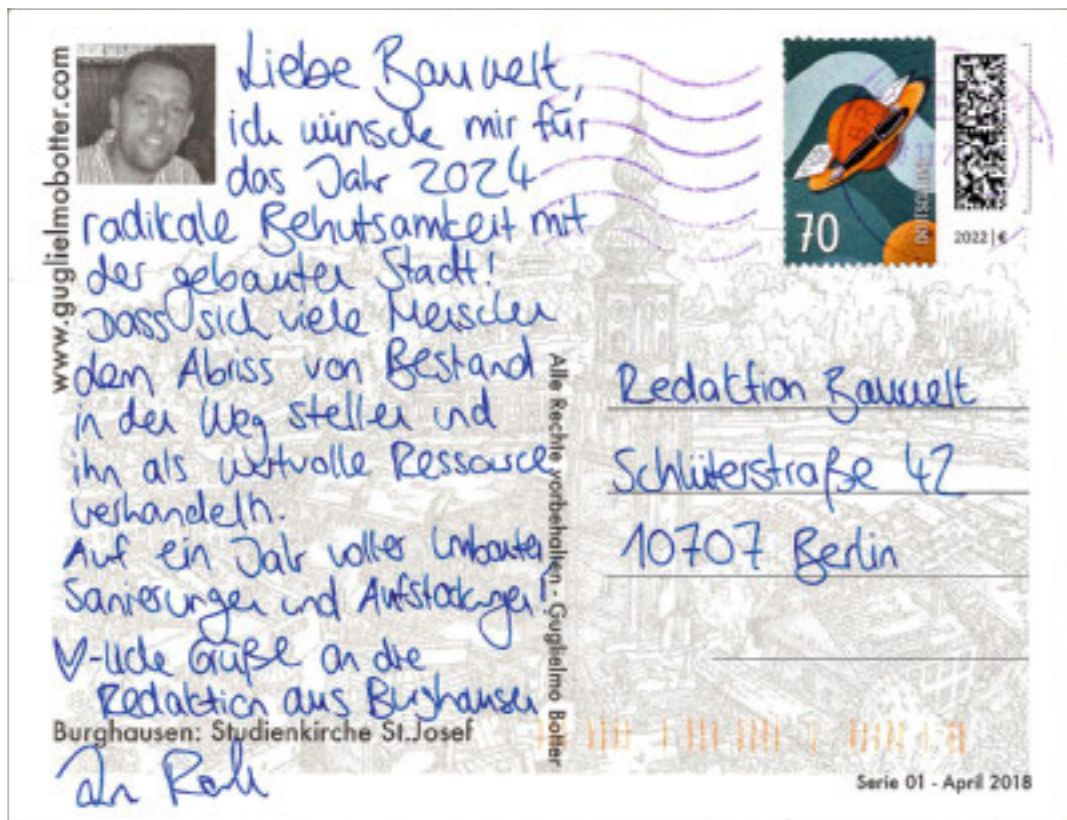 www.guglielmobotter.com
Liebe Bauwelt,
ich wünsche mir für
das Jahr 2024
radikale Behutsamkeit mit
der gebauten Stadt!
Dass sich viele Menschen
dem Abriss von Bestand
in den Weg stellen und
ihn als wertvolle Ressource
verhandeln.
Auf ein Jahr voller Umbauten
Sanierungen und Aufstockungen!
♡-liche Grüße an die
Redaktion aus Burghausen
Burghausen: Studienkirche St.Josef
Alle Rechte vorbehalten - Guglielmo Botter
70
DEUTSCHLAND
2022 | €
Redaktion Bauwelt
Schlüterstraße 42
10707 Berlin
Serie 01 - April 2018